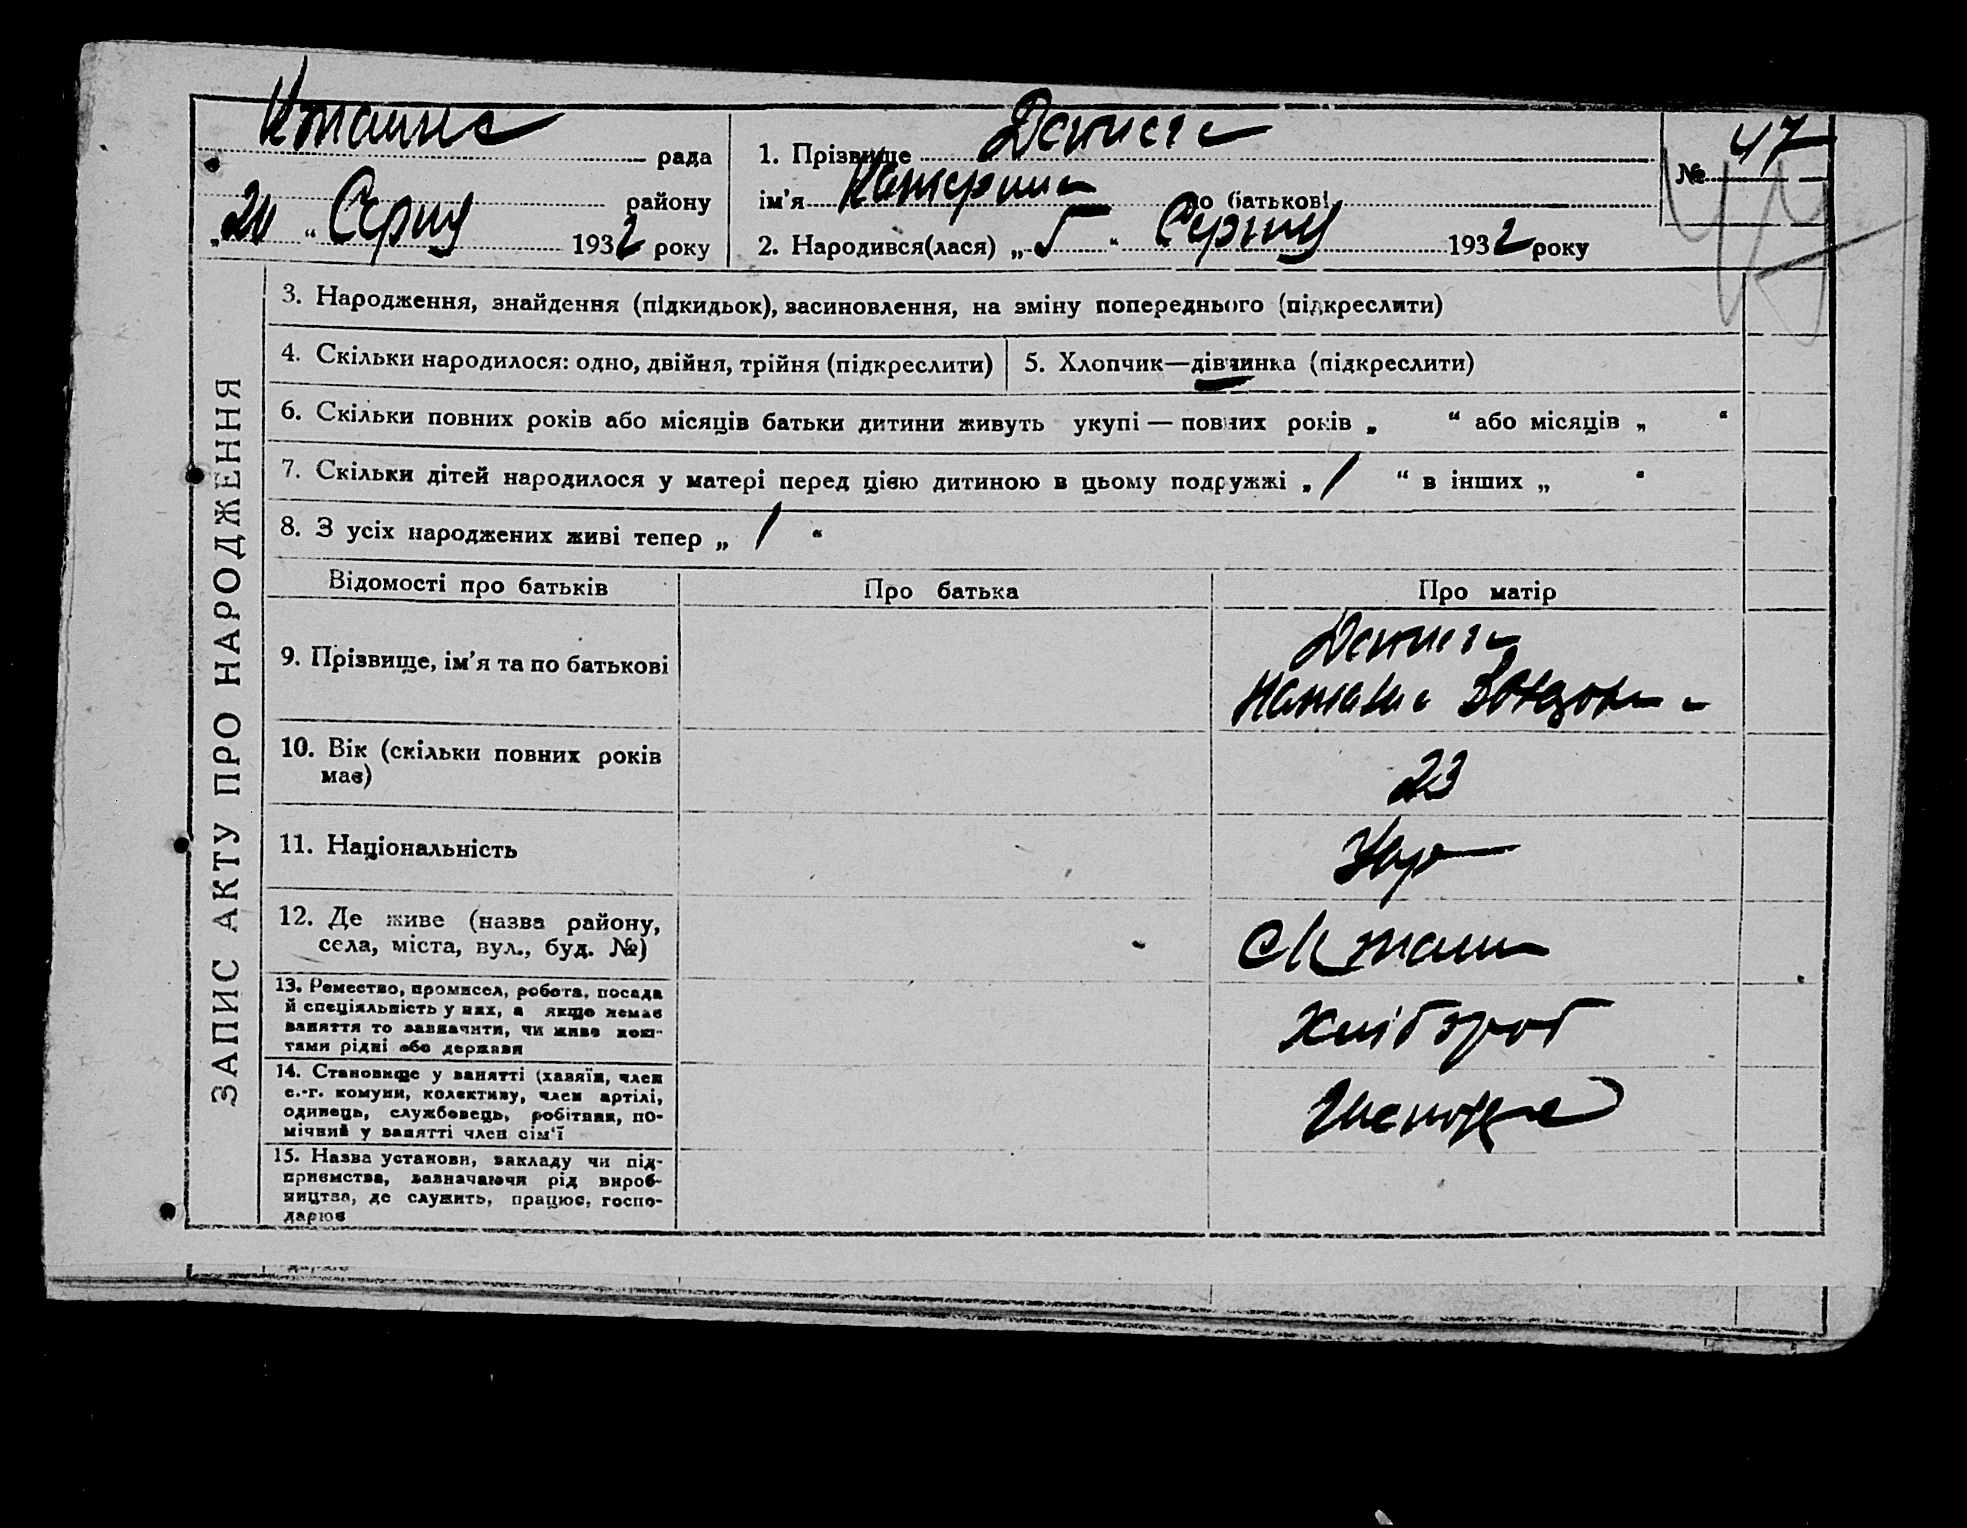 рада
1. Прізвище
№ 47
району
ім'я Катерина по батькові
„20“ Серпня 1932 року
2. Народився(лася) „5“ Серпня 1932 року
47
3. Народження, знайдення (підкидьок), засиновлення, на зміну попереднього (підкреслити)
4. Скільки народилося: одно, двійня, трійня (підкреслити)
5. Хлопчик—дівчинка (підкреслити)
6. Скільки повних років або місяців батьки дитини живуть укупі — повних років „ “ або місяців „ “
7. Скільки дітей народилося у матері перед цією дитиною в цьому подружжі „ 1 “ в інших „ “
8. З усіх народжених живі тепер „ 1 “
ЗАПИС АКТУ ПРО НАРОДЖЕННЯ
Відомості про батьків
Про батька
Про матір
9. Прізвище, ім'я та по батькові
10. Вік (скільки повних років
має)
23
11. Національність
Укр
12. Де живе (назва району,
села, міста, вул., буд. №)
13. Ремество, промисел, робота, посада
й спеціяльність у них, а якщо немає
заняття то зазначити, чи живе кош-
тами рідні або держави
хлібороб
14. Становище у занятті (хазяїн, член
с.-г. комуни, колективу, член артілі,
одинець, службовець, робітник, по-
мічний у занятті член сім'ї
15. Назва установи, закладу чи під-
приємства, зазначаючи рід вироб-
ництва, де служить, працює, госпо-
дарює